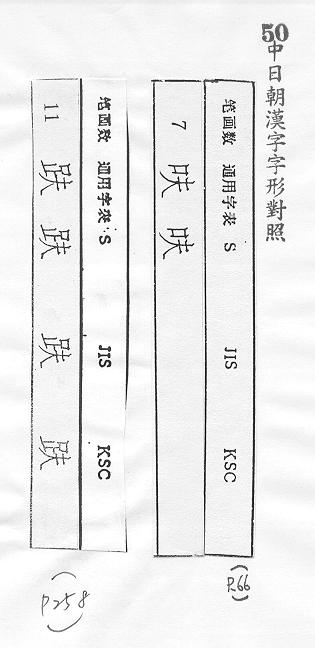 50中日朝漢字字形對照
笔画数 通用字表 S JIS KSC
7 呋 呋
(P.66)
笔画数 通用字表 S JIS KSC
11 趺 趺 趺 趺
(P258)